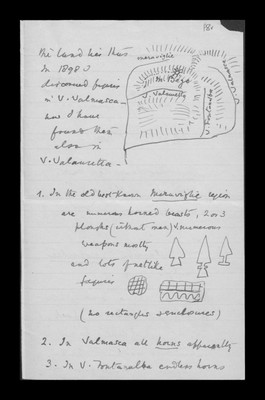 181
The land lies thus
In 1898 I
discovered figures
in V. Valmasca –
now I have
found them
also in
V. Valauretta –
meraviglie
M. Bego
V. Valauretta
V. Fontanalba
1. In the old well known Meraviglie region
are numerous horned beasts, 2 or 3
ploughs (without men) & numerous
weapons mostly
and lots of netlike
figures
(no rectangles & enclosures)
2. In Valmasca all horns apparently
3. In V. Fontanalba endless horns